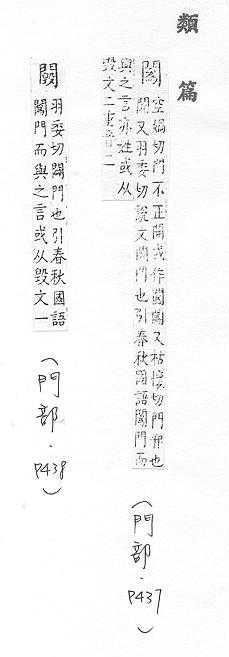 類篇
䦱
空媧切門不正開或作又枯懷切門邪也
開又羽委切說文闢門也引春秋國語䦱門而
與之言亦姓或从
毀文二重音二
(門部.P437)
羽委切闢門也引春秋國語
䦱門而與之言或从毀文一
(門部.P438)